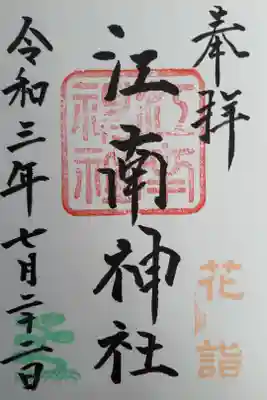 奉拝
江南神社
令和三年七月二十二日
花詣